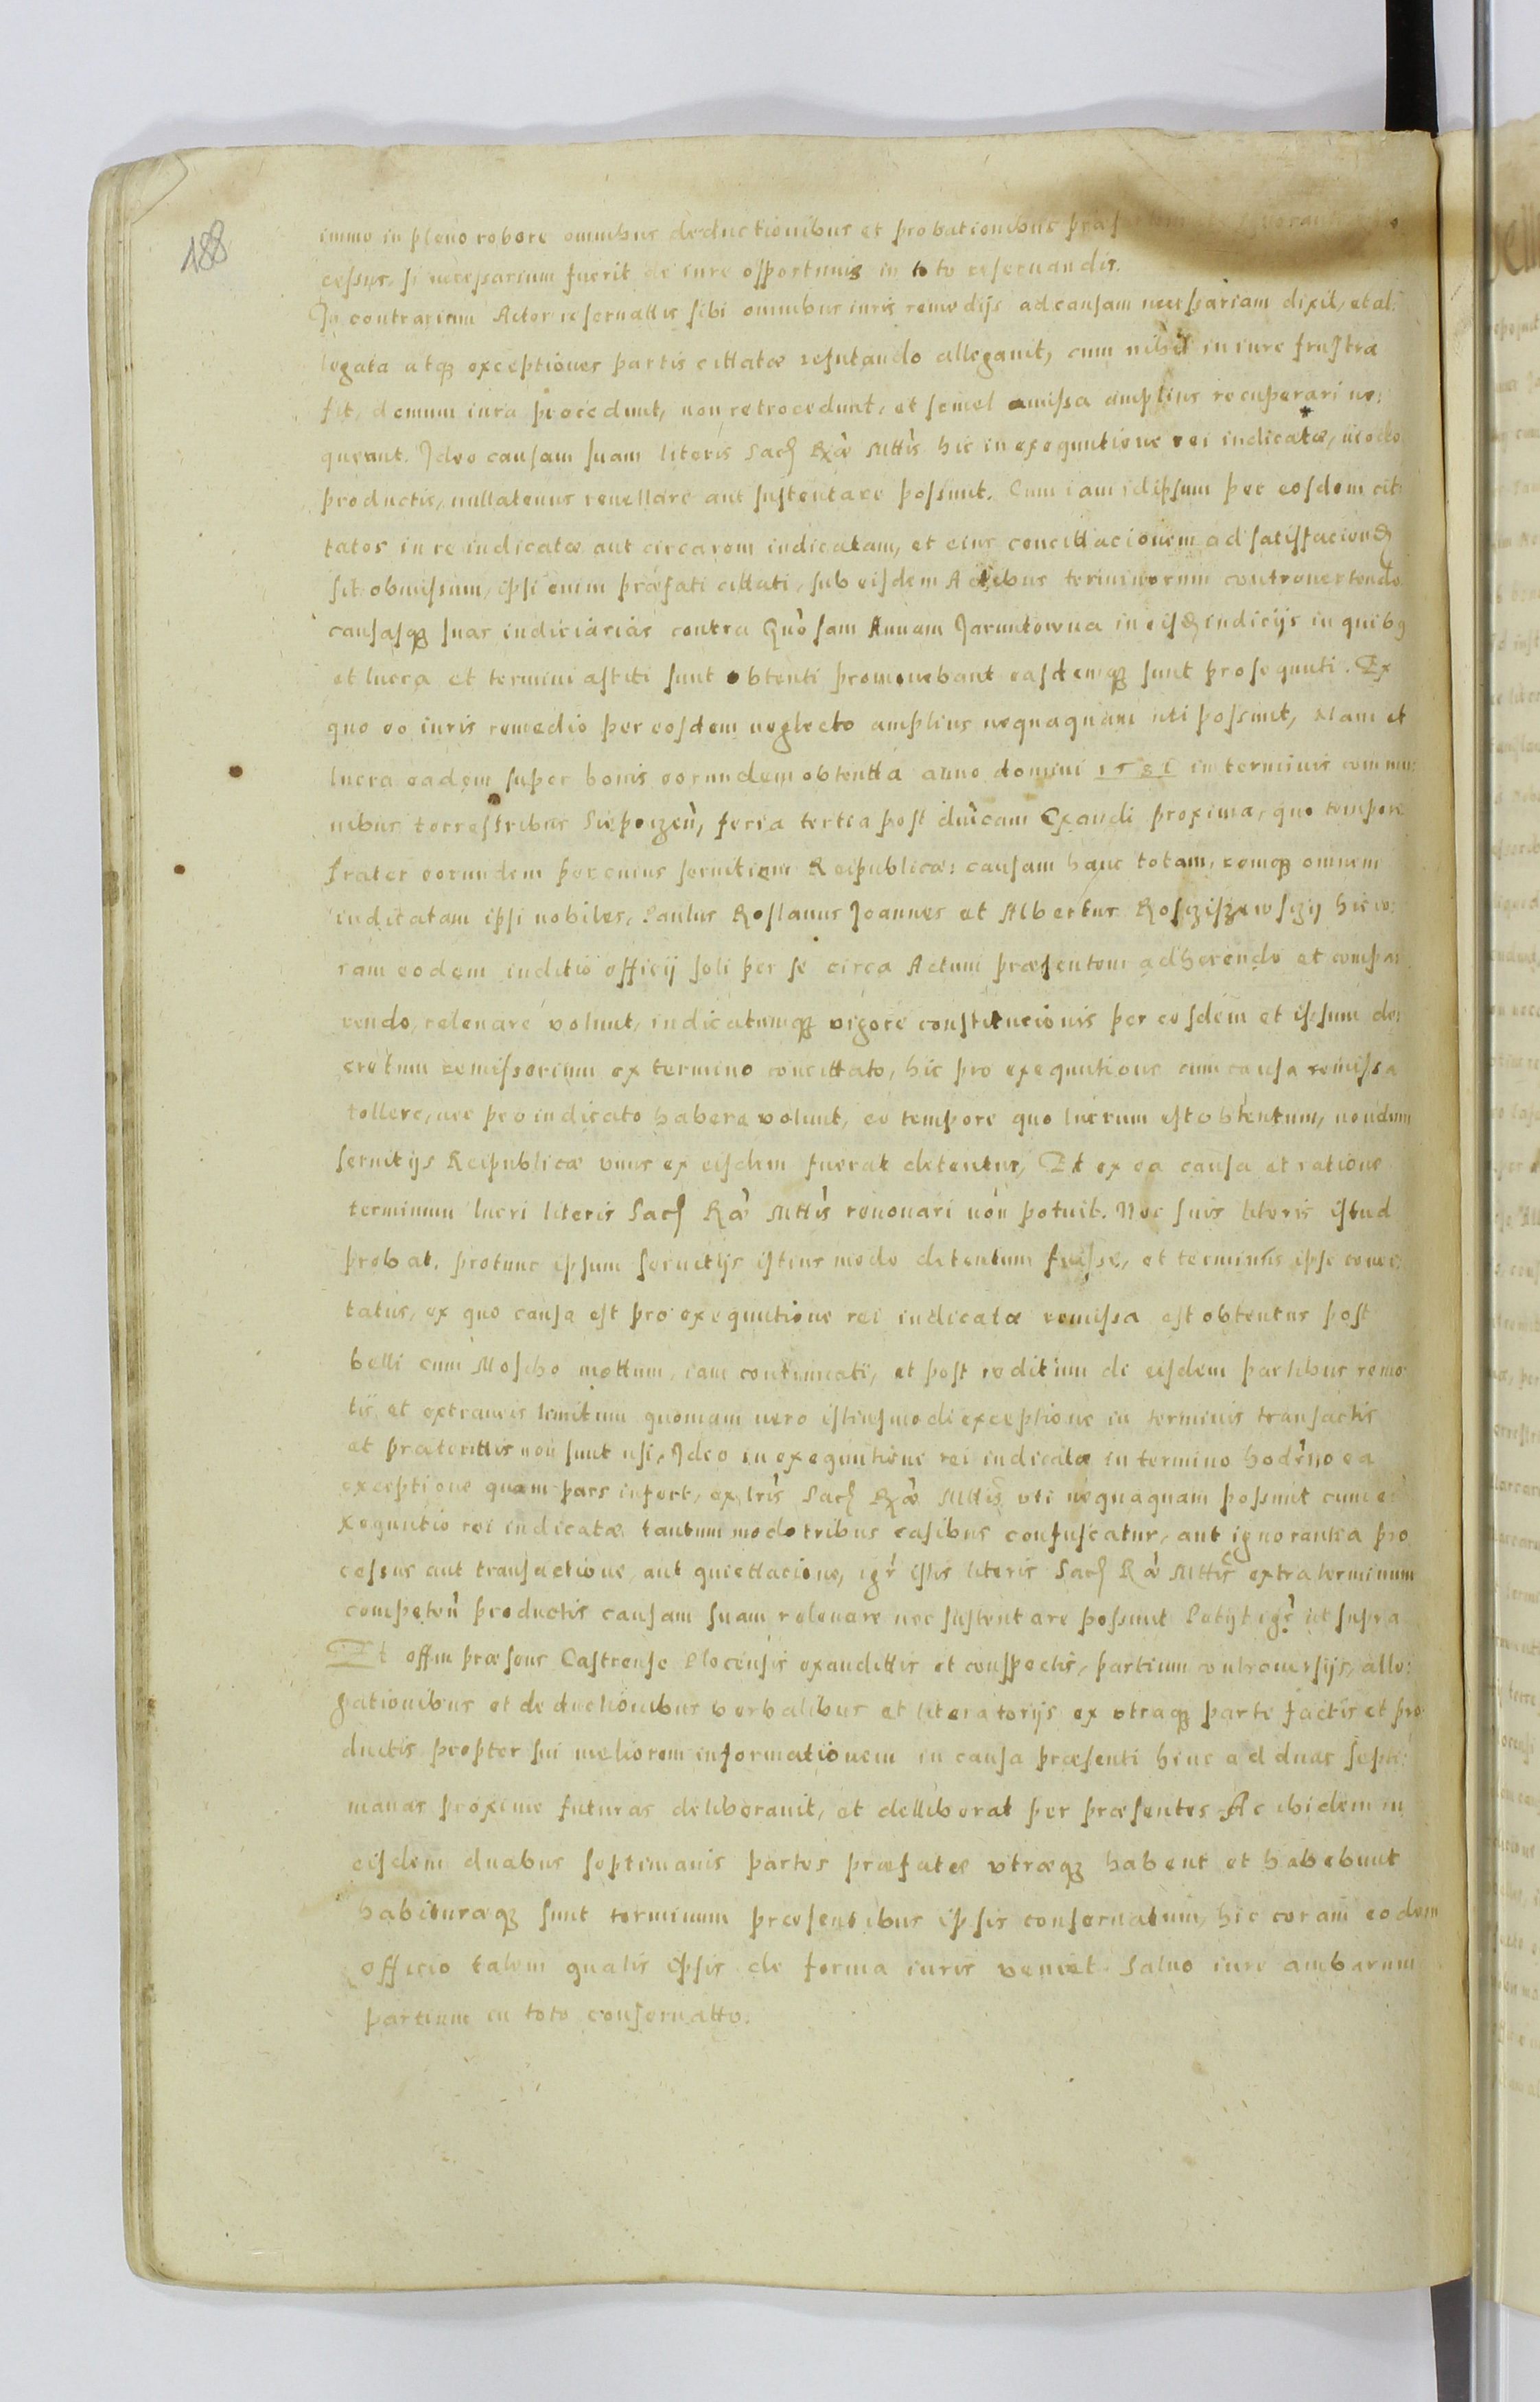 188
immo in pleno robore omnibus deductionibus et probationibus
cessus, si necessarium fuerit de iure opportunis in toto reseruandis.
In contrarium Actor reseruattis sibi omnibus iuris remedijs ad causam necessariam dixit, et al:
legata atq₃ exceptiones partis cittatæ refutando allegauit, cum nihil in iure frustra
fit, demum iura procedunt, non retrocedunt, et semel amissa amplius recuperari ne:
queunt. Ideo causam suam literis Sacꝭ Rꝫæ Mttis hic in exequutione rei iudicatæ,
productis, nullatenus reuellare aut sustentare possunt. Cum iam id ipsum per eosdem cit:
tatos in re iudicata aut circa rem iudicatam, et eius concittacionem ad satisfaciendꝭ
sit obmissum, ipsi enim præfati cittati, sub eisdem Actibus terminorum controuertendo
causasq₃ suas iudiciarias contra Gnosam Annam Jaruntowna in eisdꝭ iudicijs in quibꝯ
et lucra et termini astiti sunt obtenti promouebant easdemq₃ sunt prosequuti. Ex
quo eo iuris remedio per eosdem neglecto amplius nequaquam uti possunt, Nam et
lucra eadem super bonis eorundem obtentta anno domini 1581 in terminis commu:
nibus terrestribus Sieprzen, feria tertia post dnicam Exaudi proxima, quo tempore
frater eorundem seruitium Reipublicæ: causam hanc totam, remq₃ omnem
iudicatam ipsi nobiles, Paulus Roslanus Joannes et Albertus Rosziszewsczy hic co:
ram eodem iuditio officij soli per se circa Actum præsentem adherendo et compar
rendo, releuare volunt, iudicatumq₃ vigore constitucionis per eosdem et ipsum de:
cretum remissorium ex termino concittato, hic pro exequutione cum causa remissa
tollere, nec pro iudicato habere volunt, eo tempore quo lucrum est obtentum, nondum
seruitijs Reipublicæ vnus ex eisdem fuerat detentus, Et ex ea causa et ratione
terminum lucri literis Sacꝭ Ræ Mttis renouari non potuit. Nec suis literis istud
probat, protunc ipsum seruitijs istius modo detentum fuisse, et terminus ipse conci:
tatus, ex quo causa est pro exequutione rei iudicatæ remissa est obtentus post
belli cum Moscho mottum, iam continuati, et post reditum de eisdem partibus remo
tis et extraneis quoniam uero istiusmodi exceptione in terminis transactis
et præterittis non sunt usi, Ideo in exequutione rei iudicatæ in termino hoderno ea
exceptione quam pars infert, ex lris Sacꝭ Rꝫæ Mttis vti nequaquam possunt cum e:
xequutio rei iudicatæ tantum modo tribus casibus confuscatur, aut ignorantia pro
cessus aut transactione, aut quiettacione, igr istis literis Sacꝭ Ræ Mttis extra terminum
competen productis causam suam releuare nec sustentare possunt Petijt igr ut supra
Et offm præsens Castrense Plocensis exaudittis et conspectis, partium controuersijs, alle:
gationibus et deductionibus verbalibus et literatorijs ex vtraq₃ parte factis et pro
ductis propter sui meliorem informationem in causa præsenti hinc ad duas septi:
manas proxime futuras deliberauit, et delliberat per præsentes Ac ibidem in
eisdem duabus septimanis partes præfatæ vtræq₃ habent et habebunt
habituræq₃ sunt terminum præsentibus ipsis conseruatum, hic coram eodem
officio talem qualis ipsis de forma iuris veniet. Saluo iure ambarum
partium in toto conseruatto.